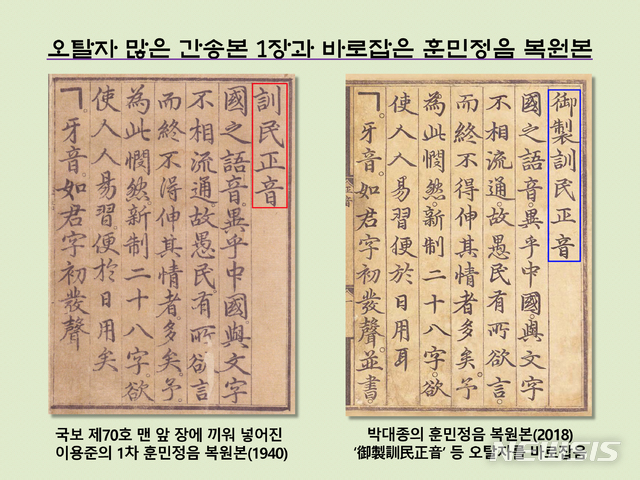 오탈자 많은 간송본 1장과 바로잡은 훈민정음 복원본
訓民正音
國之語音。異乎中國與文字
不相流通。故愚民有所欲言
而終不得伸其情者多矣。予
為此憫然新制二十八字。欲
使人人易習。便於日用矣
ㄱ。牙音。如君字初發聲
국보 제70호 맨 앞 장에 끼워 넣어진
이용준의 1차 훈민정음 복원본(1940)
御製訓民正音
國之語音。異乎中國。與文字
不相流通。故愚民有所欲言。
而終不得伸其情者多矣。予
為此憫然。新制二十八字。欲
使人人易習便於日用耳
ㄱ。牙音。如君字初發聲並書。
박대종의 훈민정음 복원본(2018)
‘御製訓民正音’ 등 오탈자를 바로잡음
NEWSIS